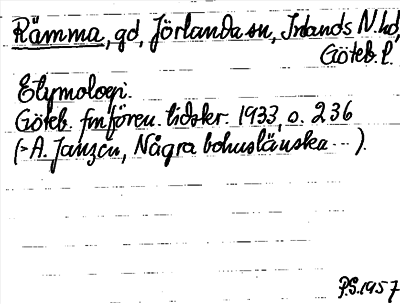 Rämma, gd, Jörlanda sn, Inlands N. hd,
Göteb. l.
Etymologi.
Göteb. fmfören. tidskr. 1933, s. 236
(> A. Janzén, Några bohuslänska ...).
P.S. 1957